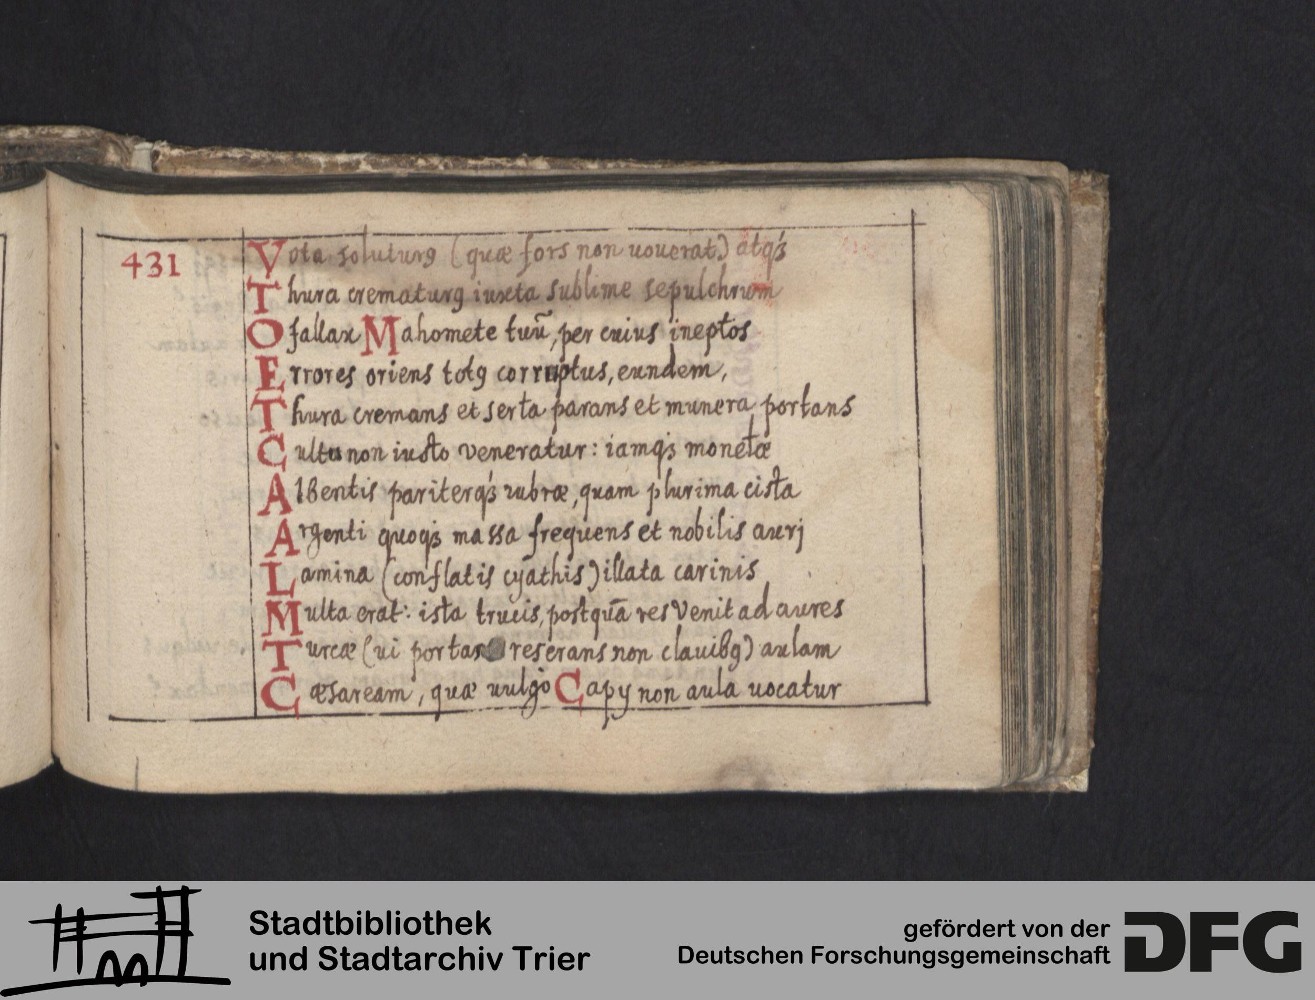 431
Vota soluturꝰ (quæ fors non uouerat) atqꝫ
Thura crematurꝰ iuxta sublime sepulchrum
O fallax Mahomete tuū, per cuius ineptos
Errores oriens totꝰ corruptus, eundem,
Thura cremans et serta parans et munera portans
Cultu non iusto veneratur: iamqꝫ monetæ
Albentis pariterqꝫ rubræ, quam plurima cista
Argenti quoqꝫ massa frequens et nobilis aurj
Lamina (conflatis cyathis) illata carinis
Multa erat: ista trucis, postquā res Venit ad aures
Turcæ (ui portan reserans non clauibꝰ) aulam
Cæsaream, quæ uulgo Capy non aula uocatur
Stadtbibliothek
und Stadtarchiv Trier
gefördert von der
Deutschen Forschungsgemeinschaft
DFG